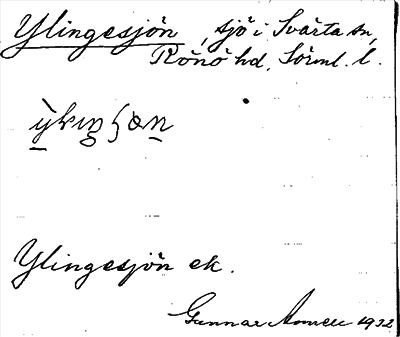 Ylingesjön, sjö i Svärta sn,
Rönö hd, Sörml. l.
Ylingesjön ek.
Gunnar 1932